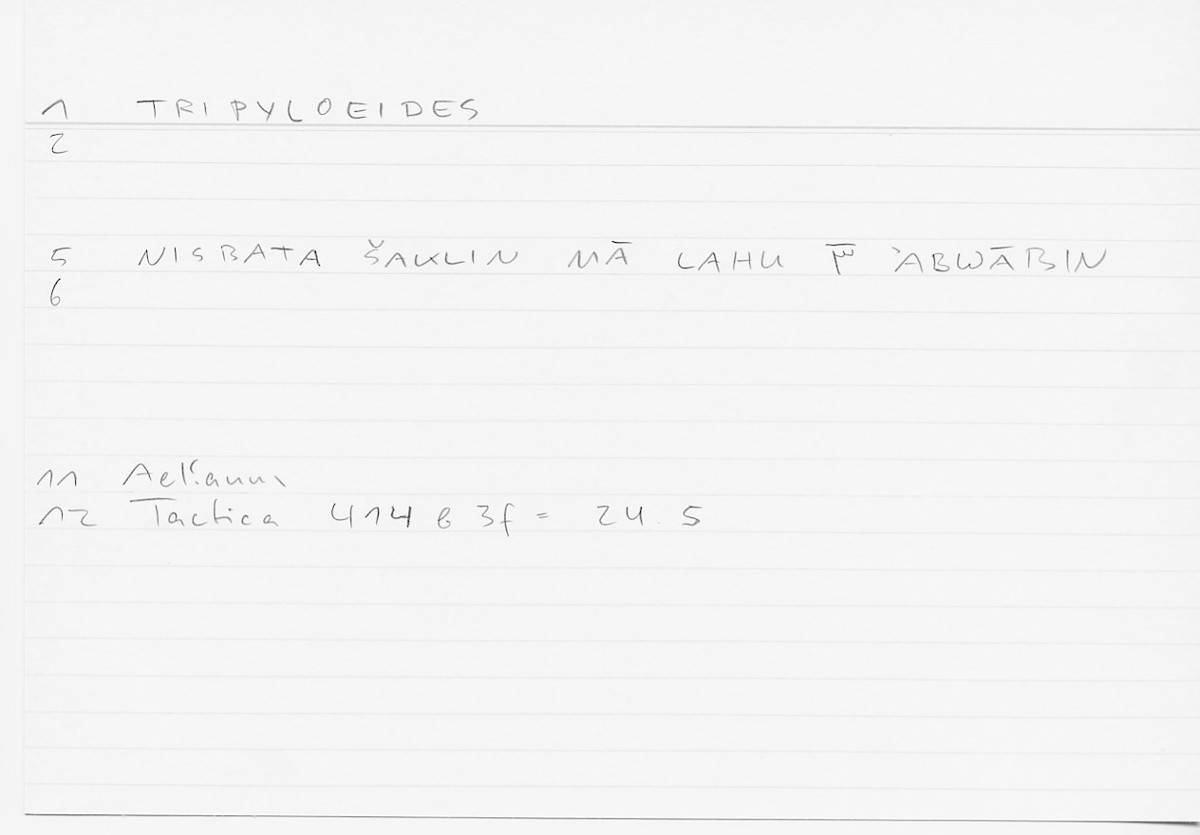 1 TRIPYLOEIDES
2
5 NISBATA ŠAKLIN MĀ LAHU ٣̅ ʾABWĀBIN
6
11 Aelianus
12 Tactica 414 b 3f = 24.5